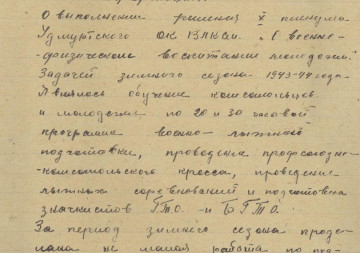 О выполнении решения X пленума
Удмуртского ОК ВЛКСМ. "О военно-
физическом воспитании молодежи."
Задачей зимнего сезона 1943-44 года
Являлось обучение комсомольцев
и молодежи по 20 и 30 часовой
программе военно-лыжной
подготовки, проведение профсоюзно-
-комсомольского кросса, проведение
лыжных соревнований и подготовка
значкистов ГТО. и БГТО.
За период зимнего сезона проде-
лана не малая работа по под-